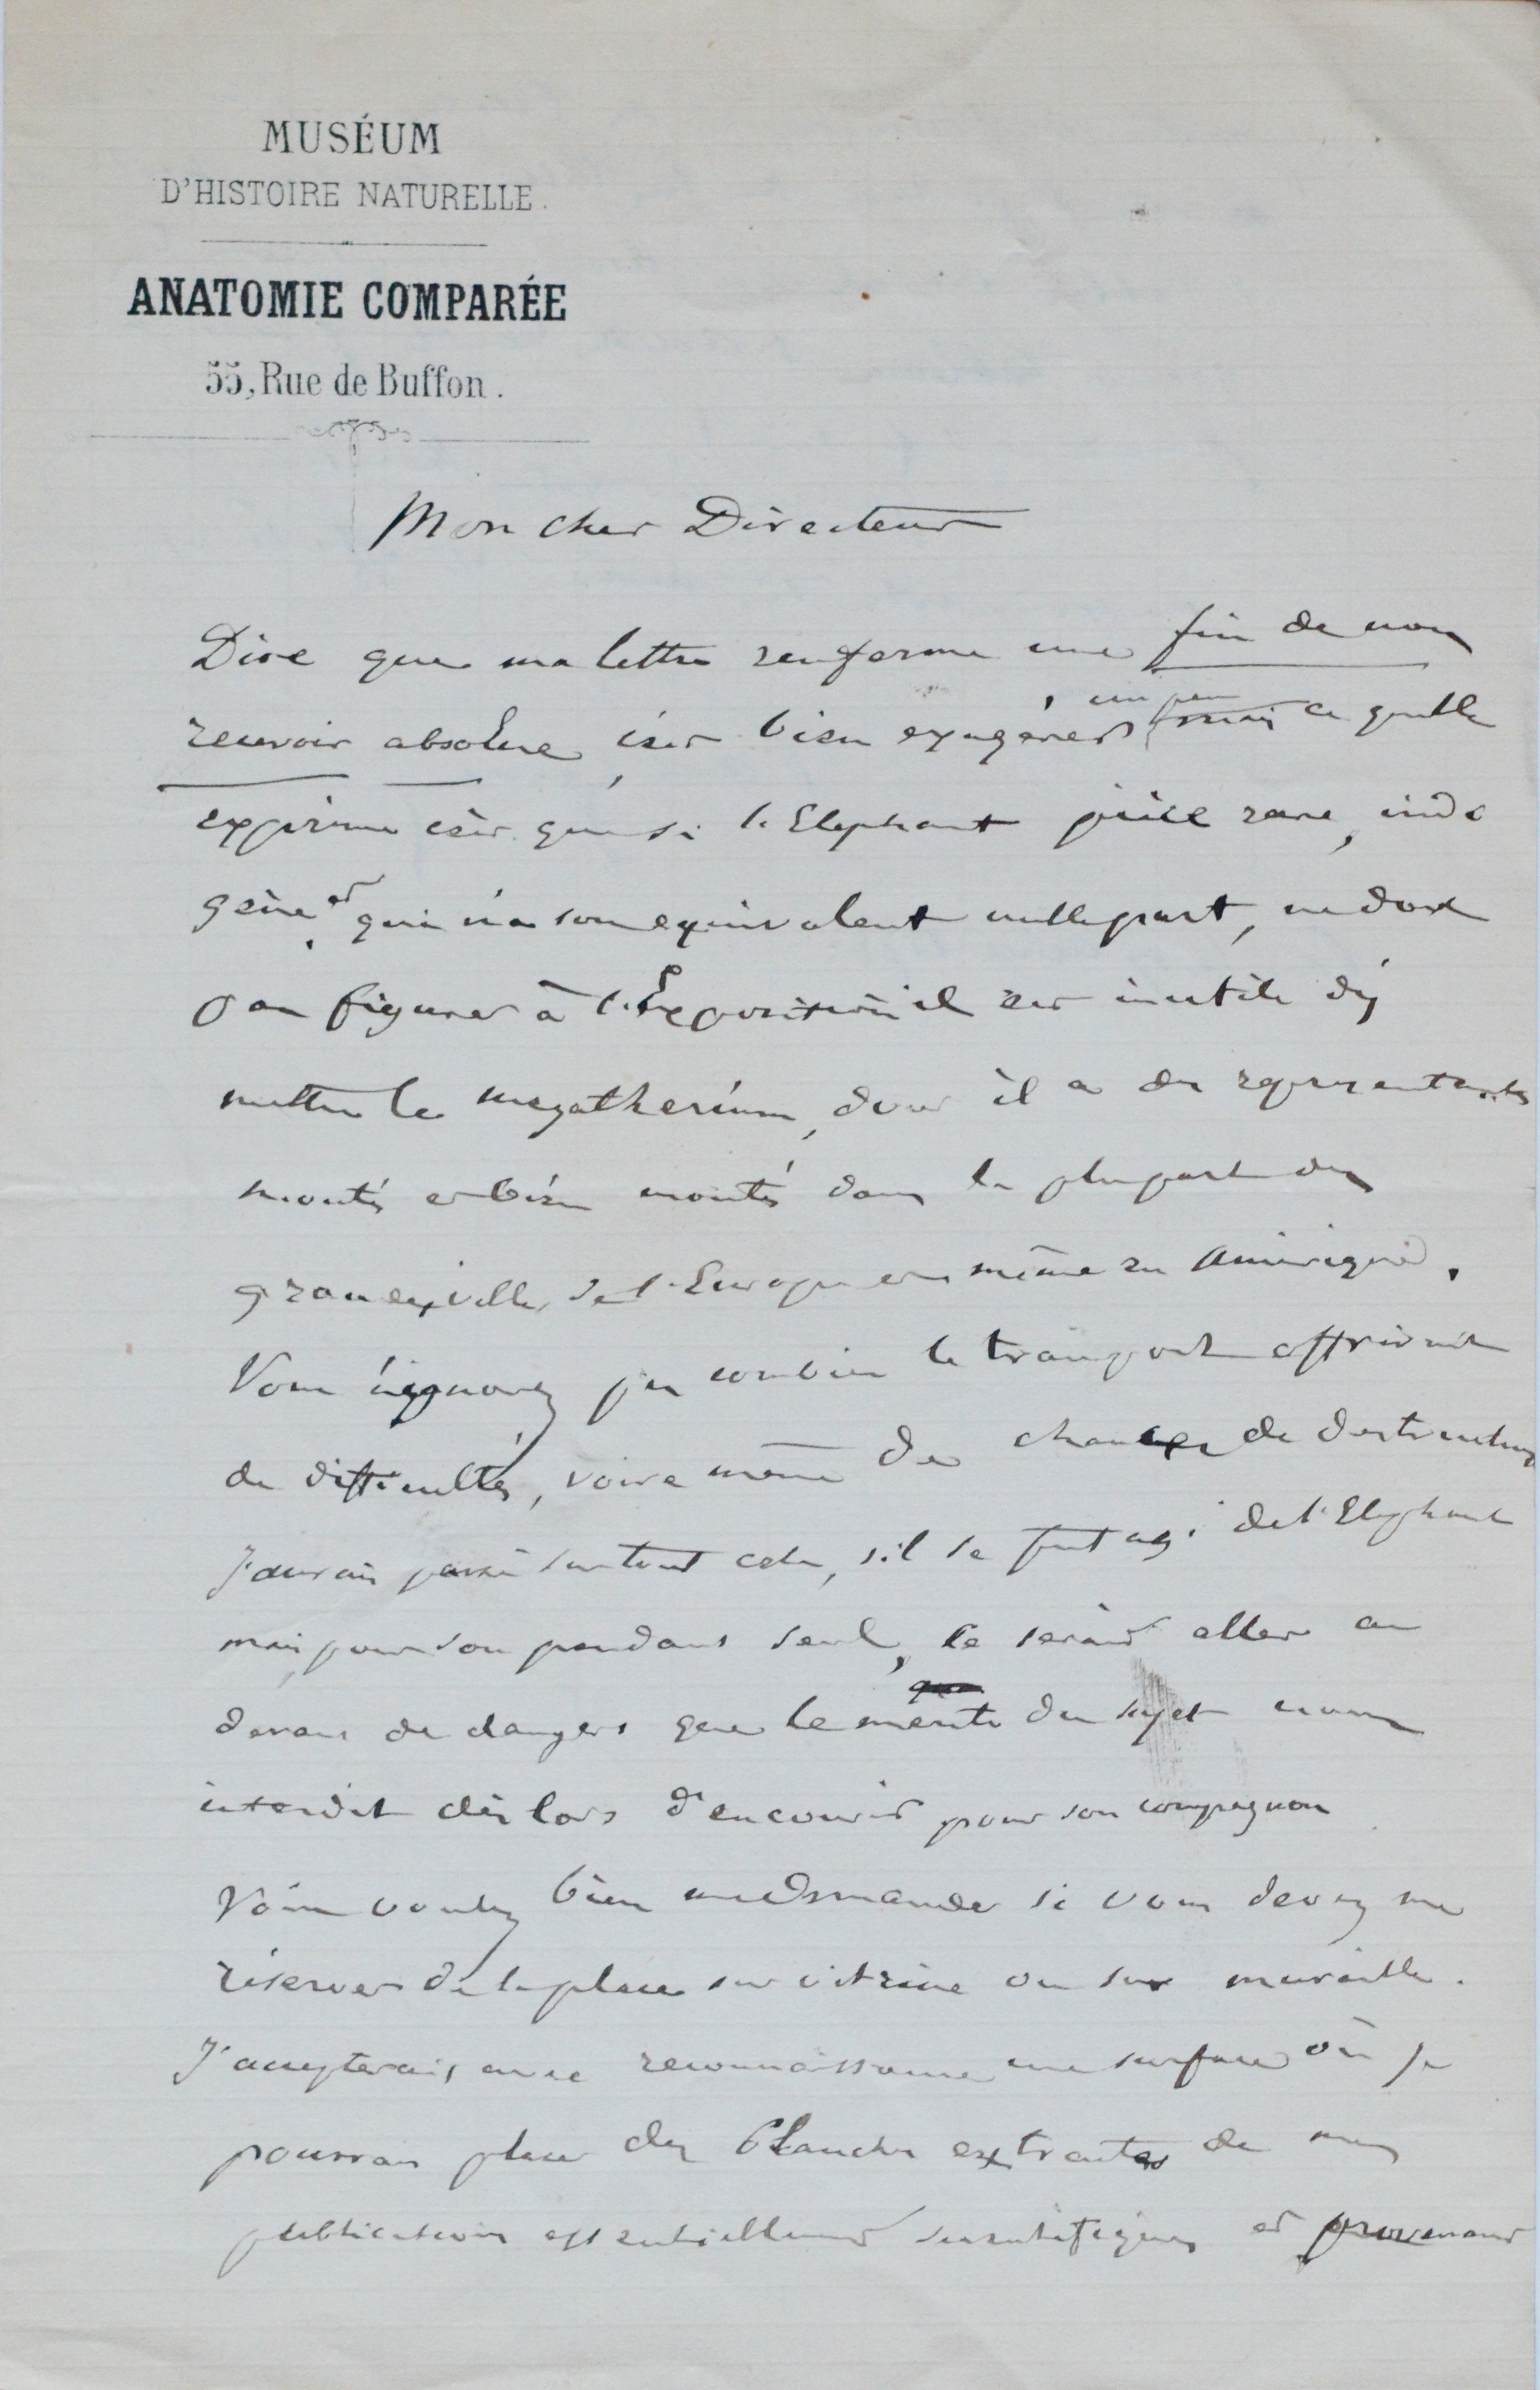 MUSÉUM
D'HISTOIRE NATURELLE.
ANATOMIE COMPARÉE
55, Rue de Buffon.
Mon cher Directeur
Dire que ma lettre renferme une fin de non
recevoir absolue, c'est bien exagérer, un peu mais ce qu'elle
exprime c'est que si l'Elephant pièce rare, indi
gène et qui n'a son equivalent nulle part, ne doit
pas figurer à l'Exposition il est inutile d'y
mettre le megatherium, dont il a des representants
montés et bien montés dans la plupart des
grandes villes de l'Europe et même en Amérique.
Vous n'ignorez pas combien le transport offrirait
de difficultés, voire même des chances de destruction
J'aurais passé sur tout cela, s'il se fut agi de l'Elephant
mais pour son pendant seul, ce serait aller au
devant de dangers que le merite du sujet nous
interdit dès lors d'encourir pour son compagnon
Vous voulez bien me demander si vous devez me
réserver de la place sur vitrine ou sur muraille.
J'accepterais avec reconnaissance une surface où je
pourrais placer des Planches extraites de mes
publications essentiellement scientifiques et provenant